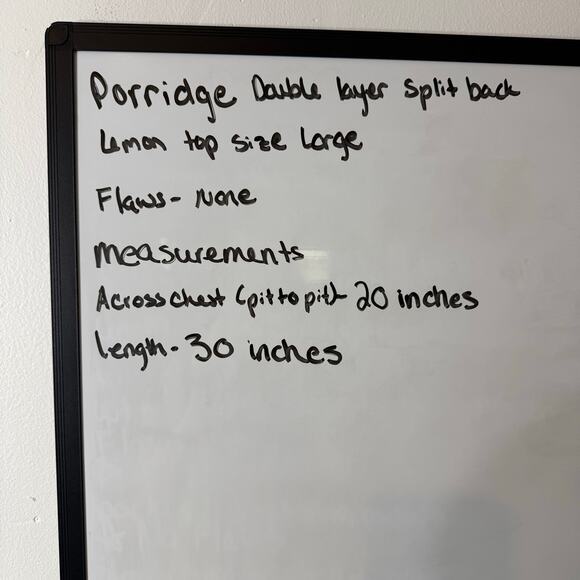 Porridge Double layer split back
Lemon top size Large
Flaws - None
Measurements
Across chest (pit to pit) - 20 inches
Length - 30 inches